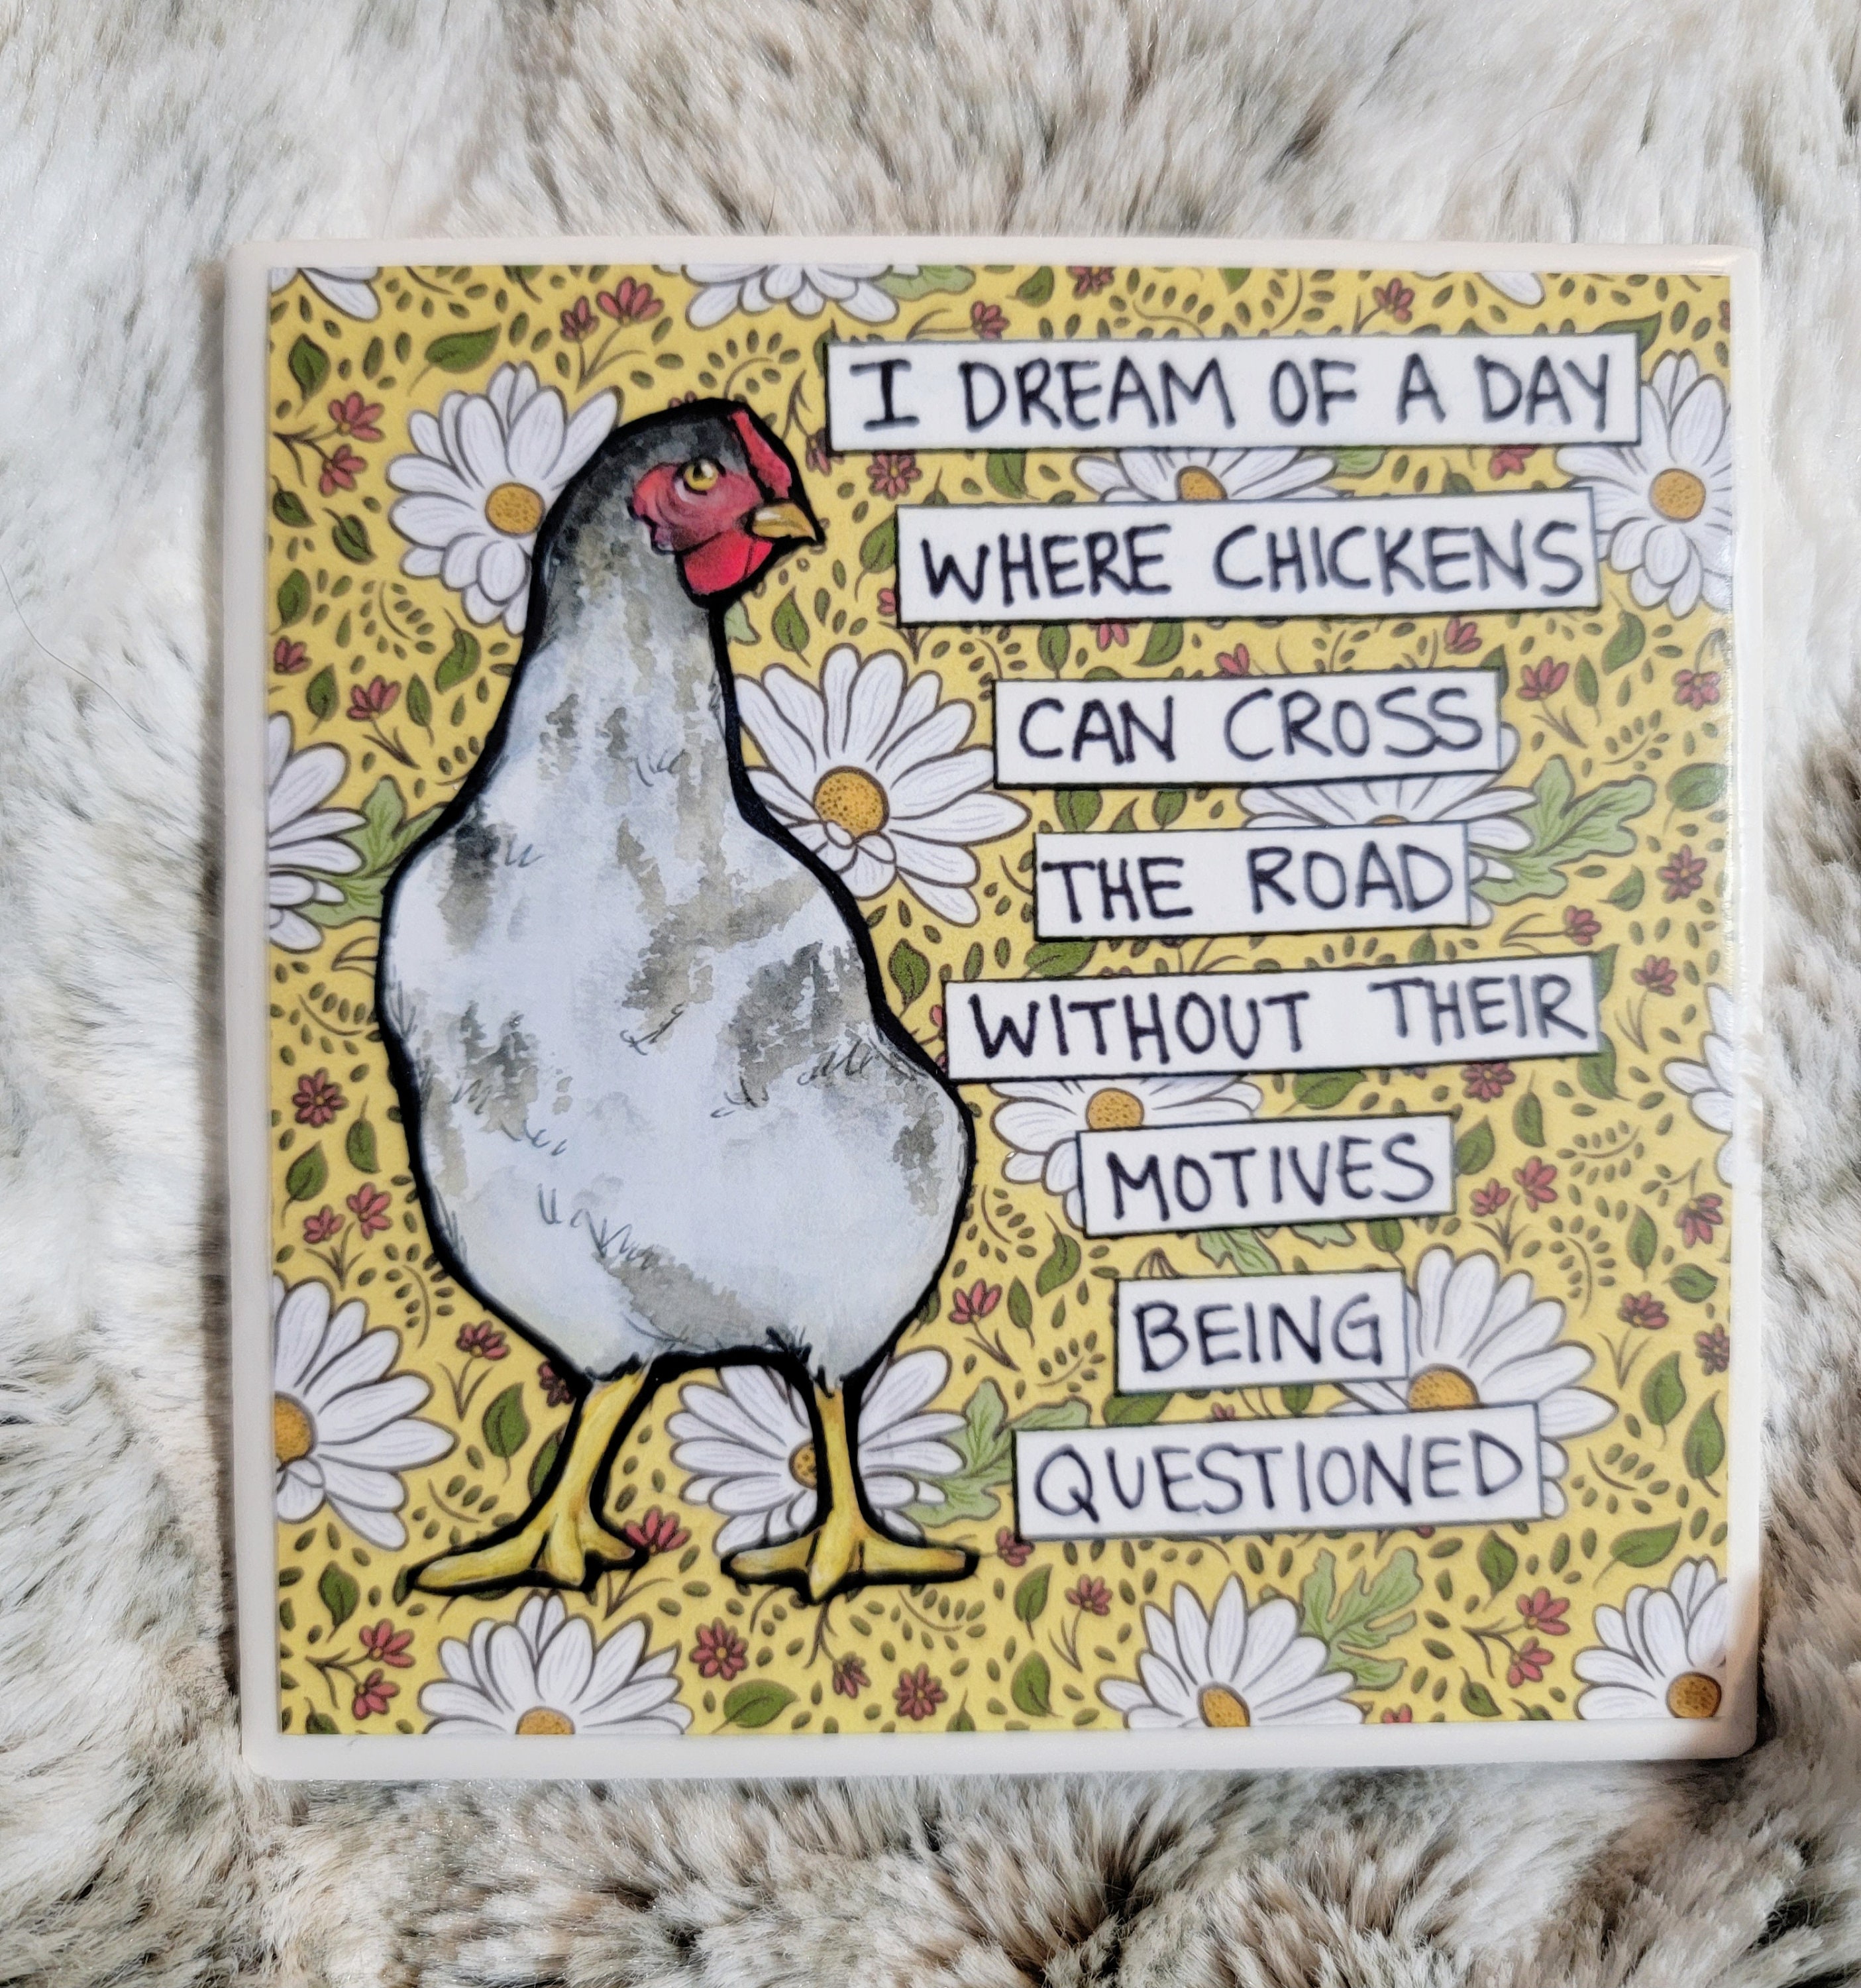 I DREAM OF A DAY
WHERE CHICKENS
CAN CROSS
THE ROAD
WITHOUT THEIR
MOTIVES
BEING
QUESTIONED